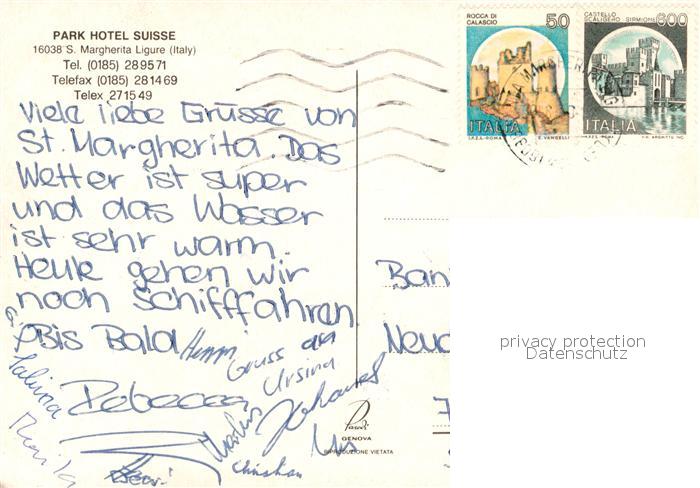 PARK HOTEL SUISSE
16038 S. Margherita Ligure (Italy)
Tel. (0185) 289571
Telefax (0185) 281469
Telex 271549
Viele liebe Grüsse von
St. Margherita. Das
Wetter ist super
und das Wasser
ist sehr warm.
Heute gehen wir
noch Schifffahren.
Bis Bald
Gruss an
Ursina
Sabina
Rebecca
Markus
Johannes
Urs
Christian
ROCCA DI CALASCIO
50
ITALIA
I.P.Z.S.-ROMA
E. VANGELLI
CASTELLO
SCALIGERO SIRMIONE
600
ITALIA
I.P.Z.S.-ROMA
Ban
Neu
7
privacy protection
Datenschutz
GENOVA
RIPRODUZIONE VIETATA